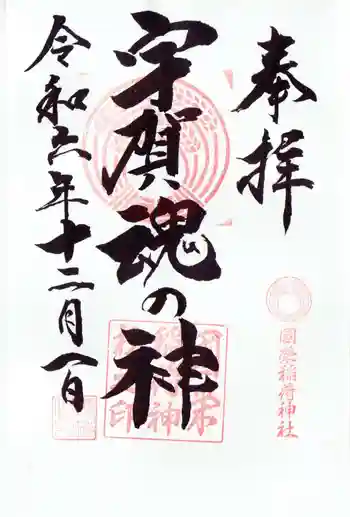 奉拝
國榮稲荷神社
宇賀魂の神
令和六年十二月八日